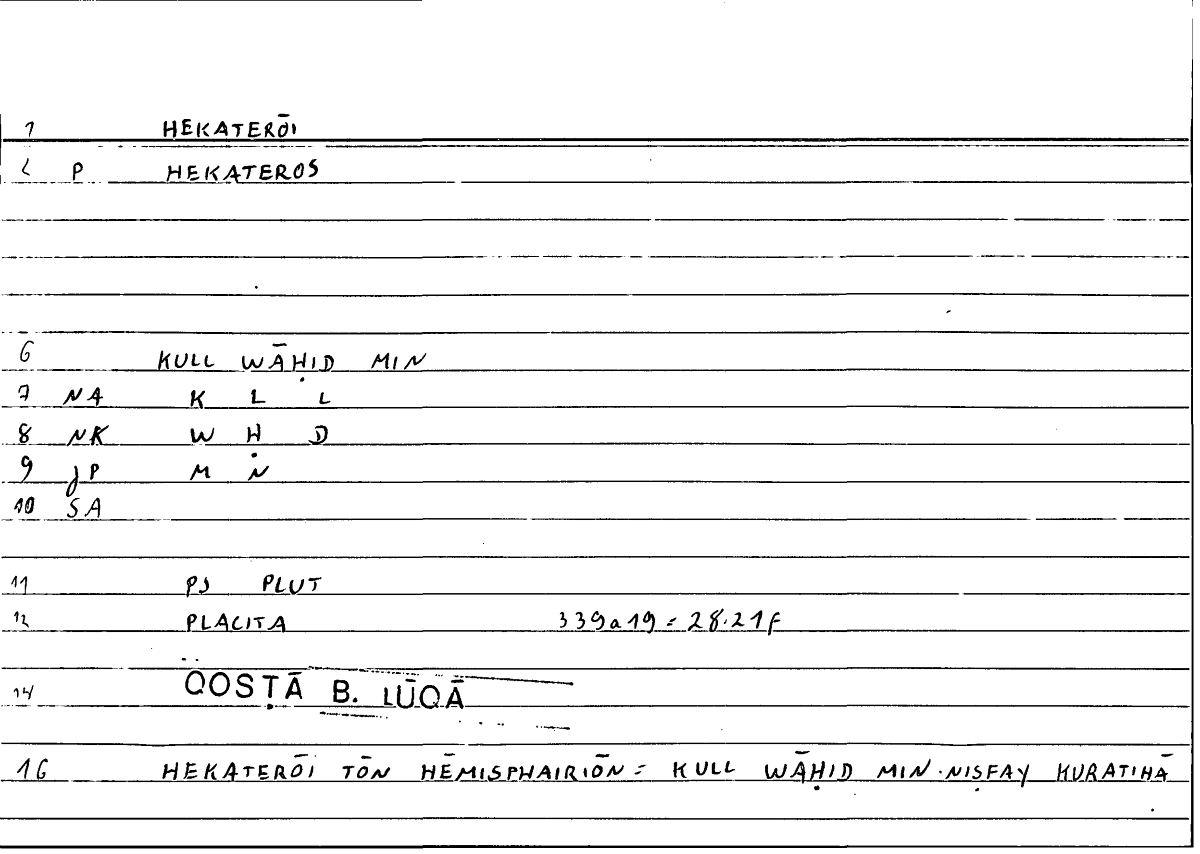 1 HEKATERŌI
2 P HEKATEROS
6 KULL WĀḤID MIN
7 NA K L L
8 NK W Ḥ D
9 JP M N
10 SA
11 PJ PLUT
12 PLACITA 339a19 = 28.21f
14 QOSṬĀ B. LŪQĀ
16 HEKATERŌI TŌN HĒMISPHAIRIŌN = KULL WĀḤID MIN NIṢFAY KURATIHĀ